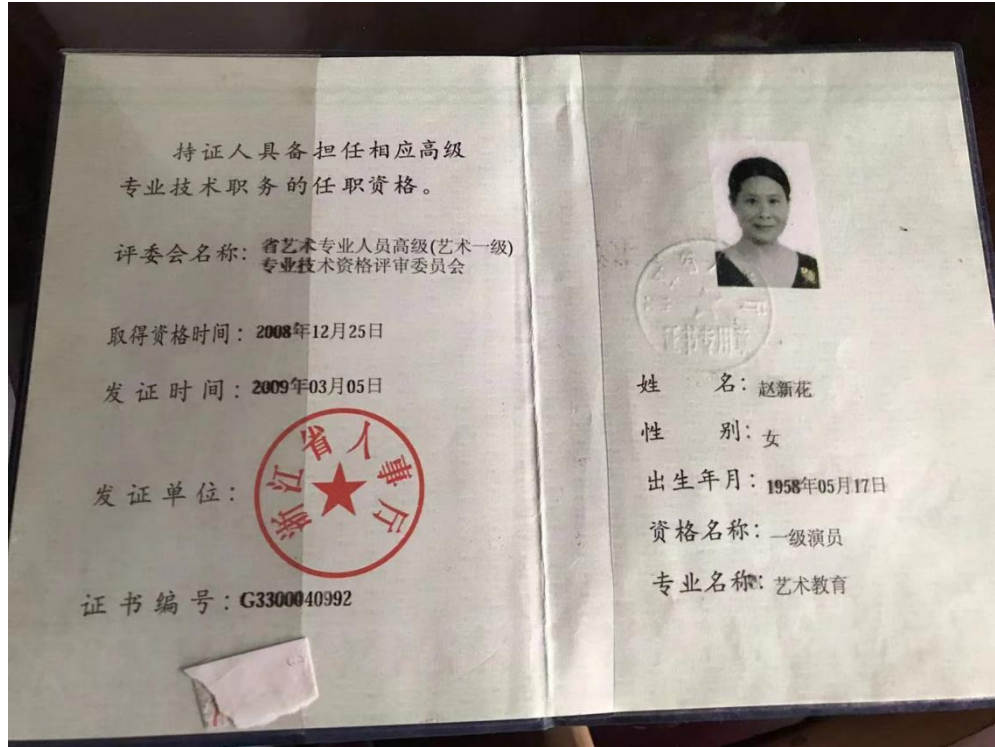 持证人具备担任相应高级
专业技术职务的任职资格。
评委会名称：省艺术专业人员高级(艺术一级)
专业技术资格评审委员会
取得资格时间：2008年12月25日
发证时间：2009年03月05日
发证单位：
浙江省人事厅
证书编号：G3300040992
证书专用章
姓 名：赵新花
性 别：女
出生年月：1958年05月17日
资格名称：一级演员
专业名称：艺术教育